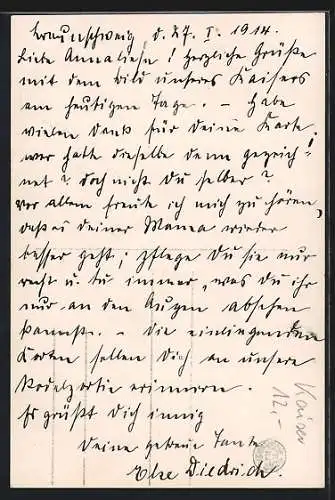 Braunschweig d. 27. I. 1914.
Liebe Annaliese! Herzliche Grüße
mit dem Bild unseres Kaisers
am heutigen Tage. – Habe
vielen Dank für Deine Karte,
wer hatte dieselbe denn gezeich-
net? doch nicht Du selber?
Vor allem freute ich mich zu hören,
daß es Deiner Mama wieder
besser geht; pflege Du sie nur
recht u. tu immer, was Du ihr
nur an den Augen absehen
kannst. – Die einliegenden
Karten sollen Dich an unsere
Rodelpartie erinnern.
Es grüßt Dich innig
Deine getreue Tante
Else Diedrich.
Kaiser
12,-